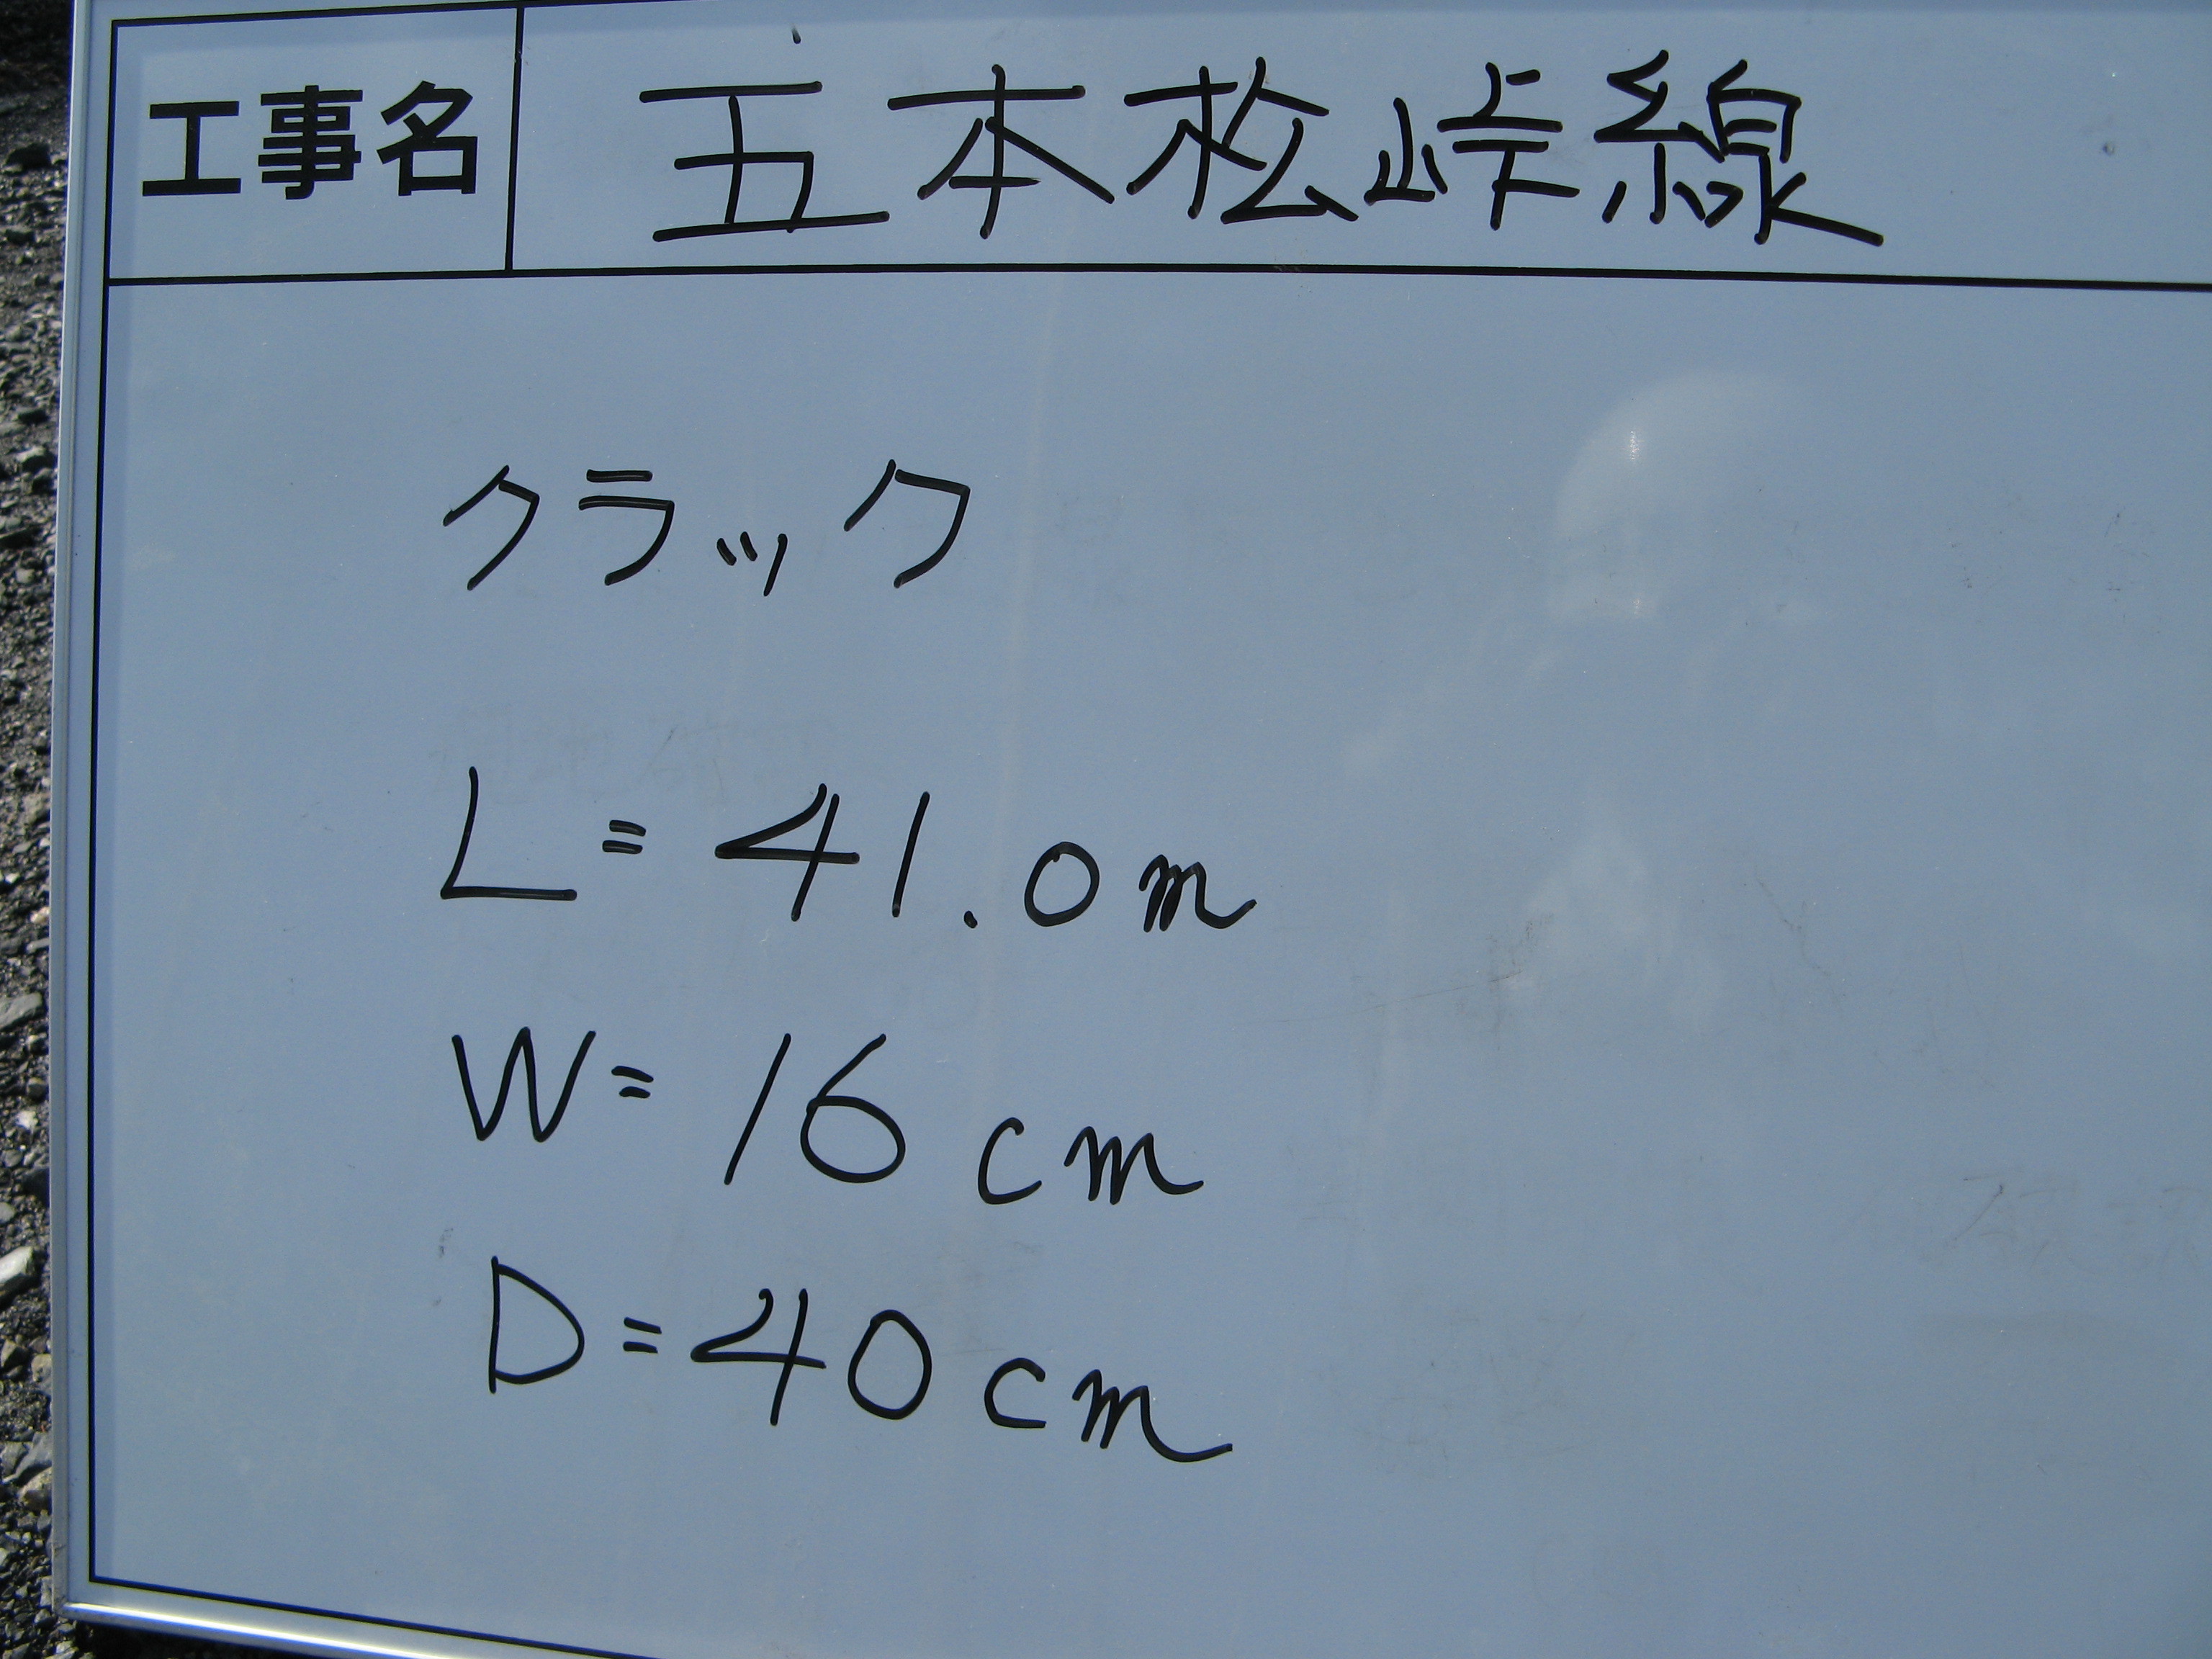 工事名 五本松峠線
クラック
L=41.0m
W=16cm
D=40cm